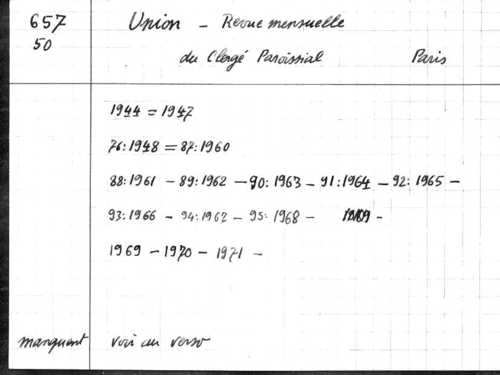 657
50
Union - Revue mensuelle
du Clergé Paroissial Paris
1944 = 1947
76:1948 = 87:1960
88:1961 - 89:1962 - 90:1963 - 91:1964 - 92:1965 -
93:1966 - 94:1962 - 95:1968 - -
1969 - 1970 - 1971 -
manquent voir au verso